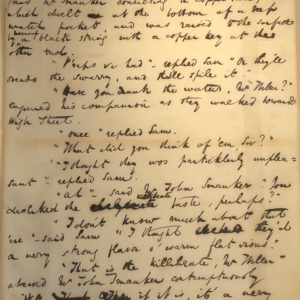 said Mr Smauker consulting a copper
which dwelt at the bottom of a deep
watch pocket and was raised to the surface
by a black string with a copper key at the
other end.
"P'raps we had" - replied Sam "or they'll
overdo the swarry, and that'll spile it."
"Have you drank the waters, Mr Weller?"
enquired his companion as they walked towards
High Street.
"Once" replied Sam.
"What did you think of 'em, Sir?"
"I thought they was particklery unplea-
sant" - replied Sam.
"Ah" - said Mr John Smauker. "You
disliked the taste, perhaps?"
"I don't know much about that
'ere" - said Sam "I thought they'd
a very strong flavor o' warm flat irons."
"That is the killibeate, Mr Weller"
observed Mr John Smauker contemptuously
if it is, it's a very